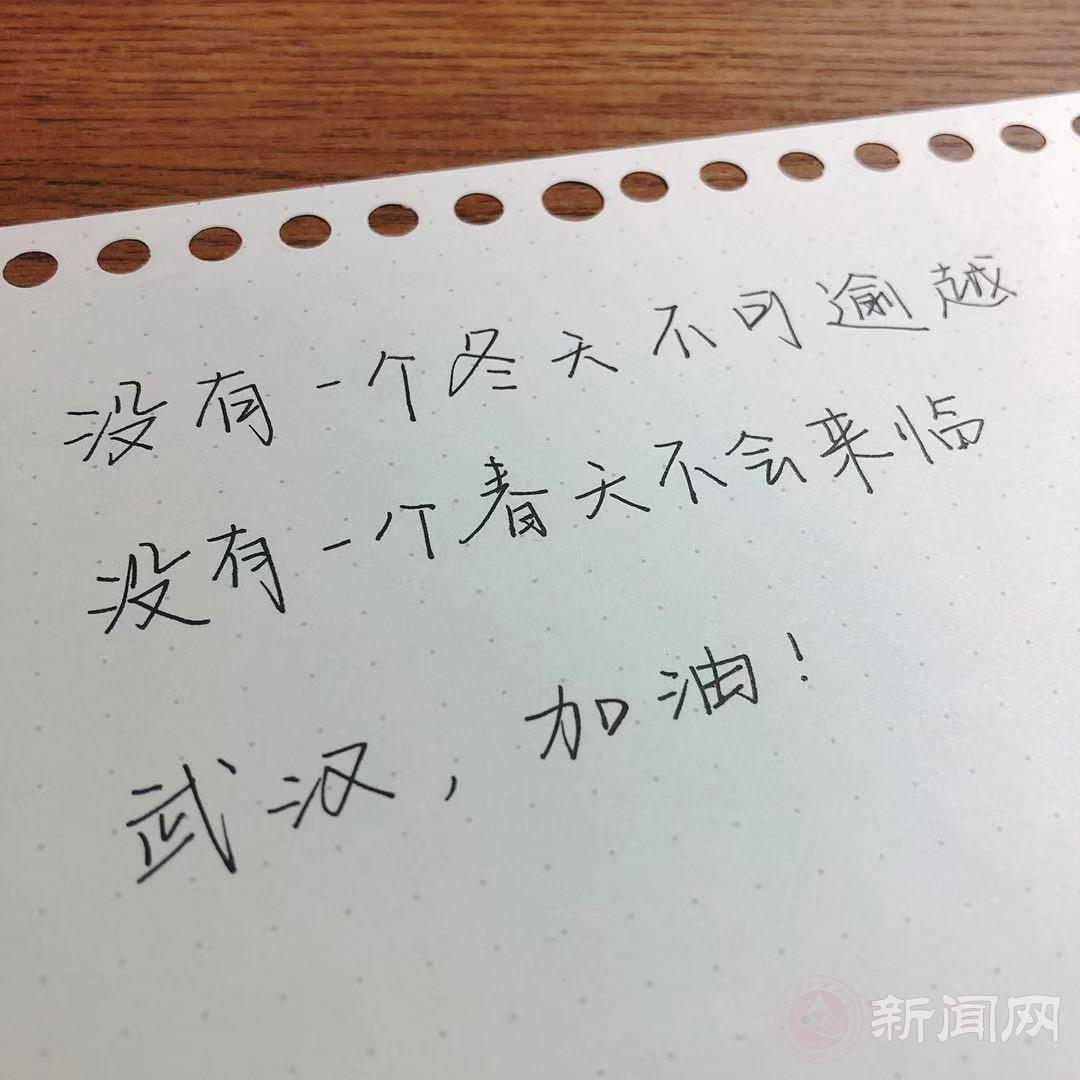 没有一个冬天不可逾越
没有一个春天不会来临
武汉，加油！
新闻网